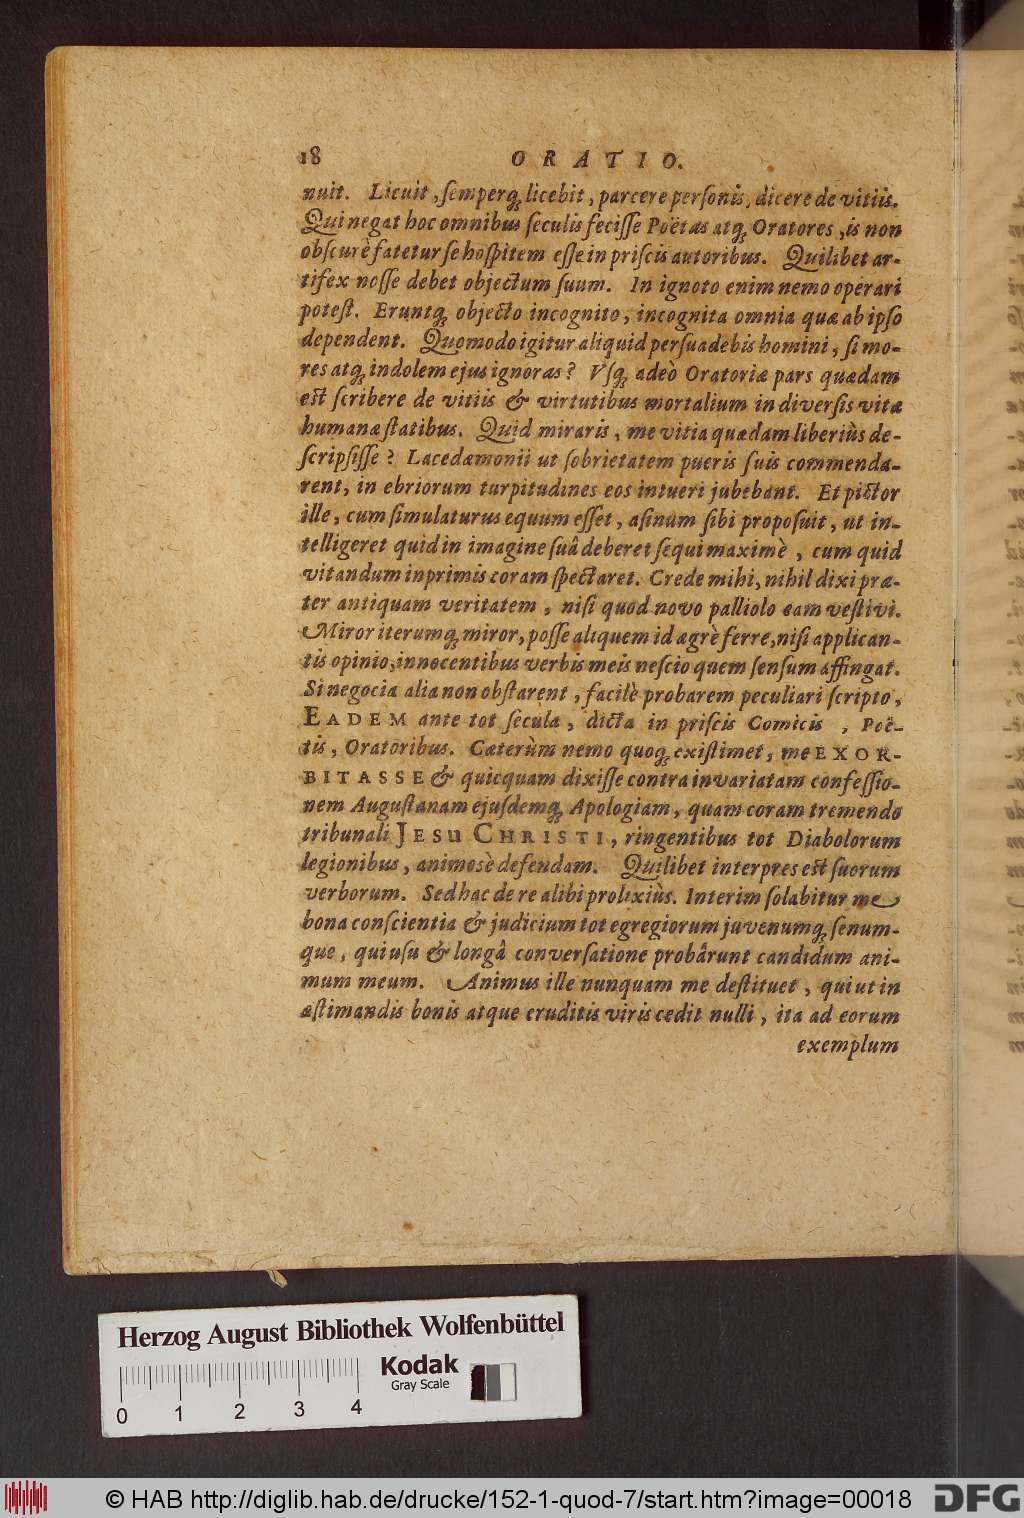 18 ORATIO.
nuit. Licuit, ſemperq́; licebit, parcere perſonis, dicere de vitiis.
Qui negat hoc omnibus ſeculis feciſſe Poëtas atq́; Oratores, is non
obſcurè fatetur ſe hoſpitem eſſe in priſcis autoribus. Quilibet ar-
tifex noſſe debet objectum ſuum. In ignoto enim nemo operari
poteſt. Eruntq́; objecto incognito, incognita omnia quæ ab ipſo
dependent. Quomodo igitur aliquid perſuadebis homini, ſi mo-
res atq́; indolem ejus ignoras? Vſq́; adeò Oratoriæ pars quædam
eſt ſcribere de vitiis & virtutibus mortalium in diverſis vitæ
humanæ ſtatibus. Quid miraris, me vitia quædam liberiùs de-
ſcripſiſſe? Lacedæmonii ut ſobrietatem pueris ſuis commenda-
rent, in ebriorum turpitudines eos intueri jubebant. Et pictor
ille, cum ſimulaturus equum eſſet, aſinum ſibi propoſuit, ut in-
telligeret quid in imagine ſuâ deberet ſequi maximè, cum quid
vitandum inprimis coram ſpectaret. Crede mihi, nihil dixi præ-
ter antiquam veritatem, niſi quod novo palliolo eam veſtivi.
Miror iterumq́; miror, poſſe aliquem id ægrè ferre, niſi applican-
tis opinio, innocentibus verbis meis neſcio quem ſenſum affingat.
Si negocia alia non obſtarent, facilè probarem peculiari ſcripto,
EADEM ante tot ſecula, dicta in priſcis Comicis, Poë-
tis, Oratoribus. Cæterùm nemo quoq́; exiſtimet, me EXOR-
BITASSE & quicquam dixiſſe contra invariatam confeſſio-
nem Auguſtanam ejuſdemq́; Apologiam, quam coram tremendo
tribunali JESU CHRISTI, ringentibus tot Diabolorum
legionibus, animosè defendam. Quilibet interpres eſt ſuorum
verborum. Sed hac de re alibi prolixiùs. Interim ſolabitur me
bona conſcientia & judicium tot egregiorum juvenumq́; ſenum-
que, qui uſu & longâ converſatione probârunt candidum ani-
mum meum. Animus ille nunquam me deſtituet, qui ut in
æſtimandis bonis atque eruditis viris cedit nulli, ita ad eorum
exemplum
Herzog August Bibliothek Wolfenbüttel
Kodak
Gray Scale
0 1 2 3 4
© HAB http://diglib.hab.de/drucke/152-1-quod-7/start.htm?image=00018 DFG